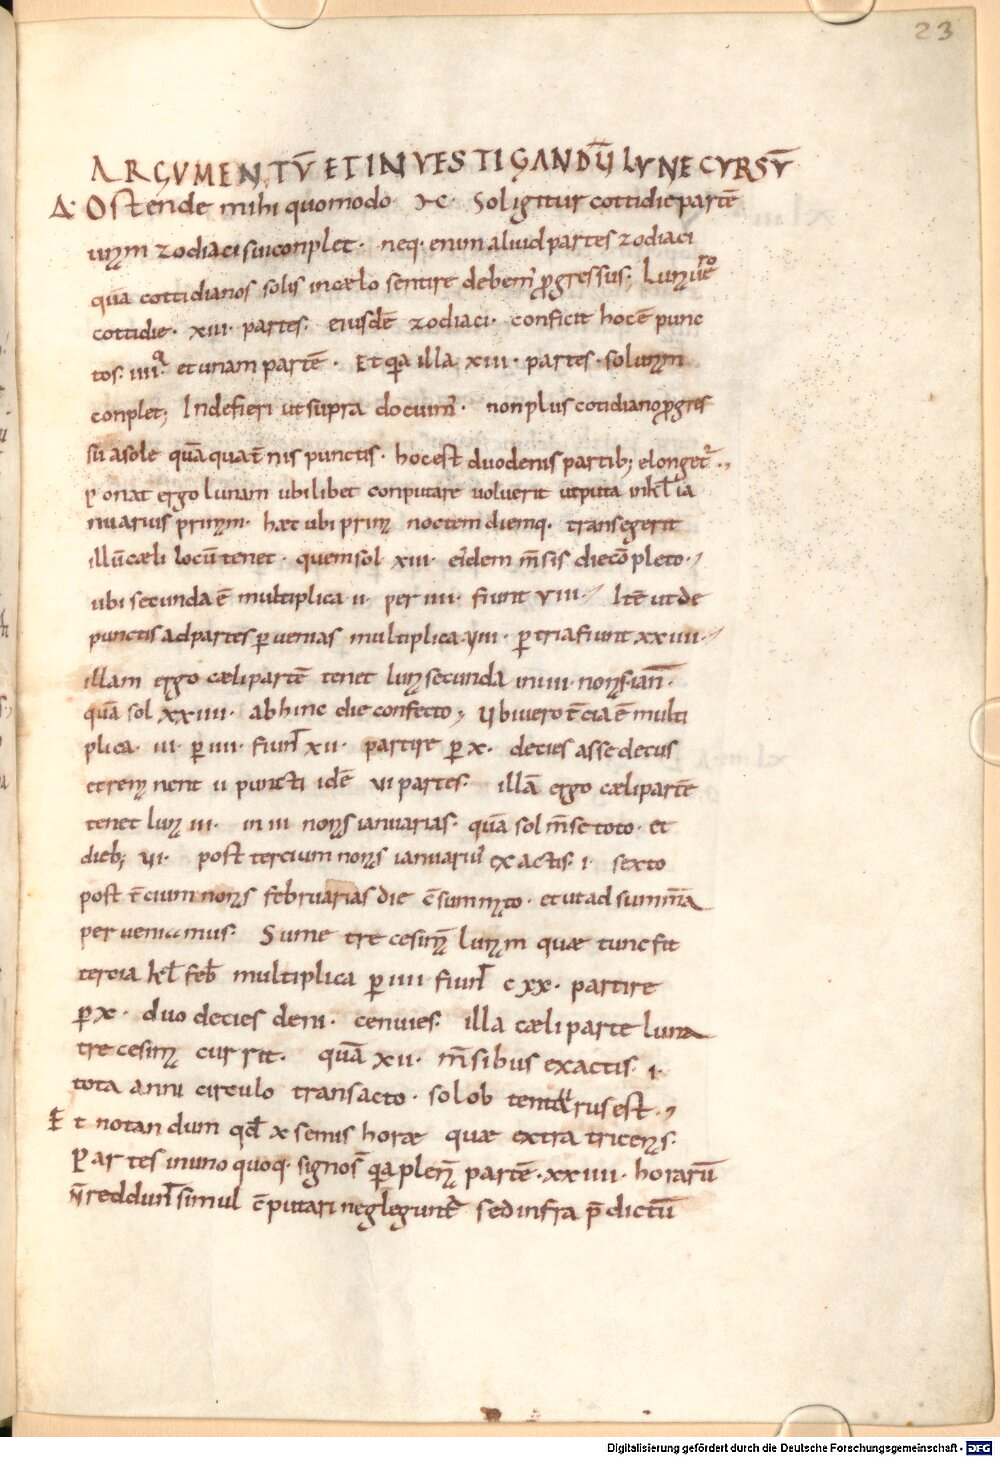 23
ARGUMENTŪ ET INVESTIGANDŨ LUNE CURSŪ
Δ· Ostende mihi quomodo· &c· Sol igitur cottidie partē
unum zodiaci sui conplet· neq· enim aliud partes zodiaci
quā cottidianos solis in cælo sentire debem' progressus; Luna ūero
cottidie· xiii· partes· eiusdē zodiaci· conficit hoc ē punc
tos· iiii· et unam partē· Et quia illa xiii· partes· sol unum
conplet; Inde fieri ut supra docuim'· non plus cotidiano progres
sū a sole quā quatīnis punctis· hoc est duodenis partib; elonget'·,
Ponat ergo lunam ubilibet conputare voluerit utputa in kl ia
nuarius primum· hæc ubi prima noctem diemq· transegerit
illū cæli locū tenet· quem sol xiii· eidem m̄sis die cōpleto·,
ubi secunda ē multiplica ii· per iiii· fiunt viii· Itē ut de
punctis ad partes pervenias multiplica viii· p tria fiunt xxiiii·
illam ergo cæli partē tenet luna secunda in iiii· nonas ian̄·
quā sol xxiiii· ab hinc die confecto; Ubi vero t̄cia ē multi
plica· iii· p iiii· fiun̄t xii· partire p x· decies asse decus
et remanent ii puncti idē vi partes· illā ergo cæli partē
tenet luna iii· in iii nonas ianuarias· quā sol m̄se toto· et
dieb; vi· post tercium nonas ianuariū exactis· i· sexto
post t̄cium nonas februarias die c̄summato· et ut ad summā
perveniamus· Sume trecesimam lunam quæ tunc fit
tercia kl feb multiplica p iiii· fiun̄t cxx· partire
p x· duodecies deni· cenvies· illa cæli parte luna
trecesima currit· quā xii· m̄sibus exactis· i·
tota anni circulo transacto· sol obtentarus est·,
Et notandum qđ x semis horæ quæ extra tricenas·
Partes in unoquoq· signos qa plenam partē· xxiiii· horarū
n̄ reddun̄t simul c̄putari neglegunt' sed infra p̄dictū
Digitalisierung gefördert durch die Deutsche Forschungsgemeinschaft - DFG